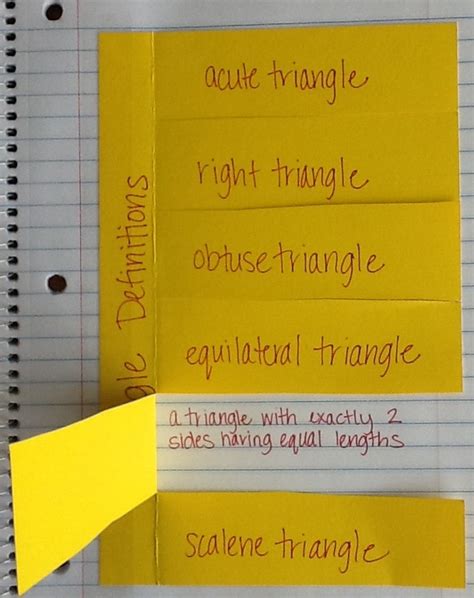 acute triangle
right triangle
obtuse triangle
equilateral triangle
a triangle with exactly 2
sides having equal lengths
scalene triangle
gle Definitions